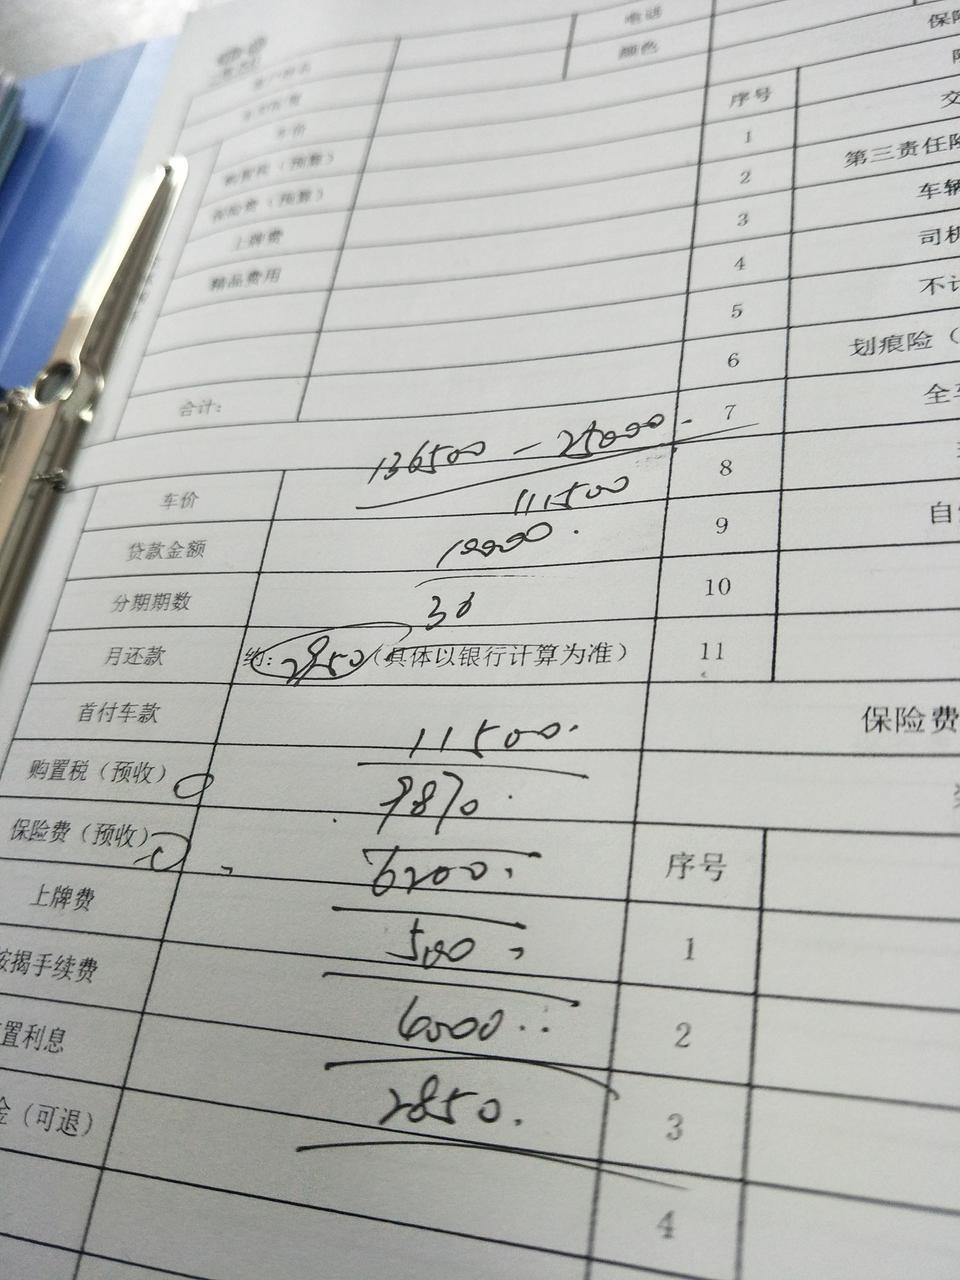 电话
保险
颜色
车价
购置税（预算）
保险费（预算）
上牌费
精品费用
合计：
序号
1
2 第三责任险
3 车辆
4 司机
5 不计
6 划痕险（
7 全车
8
9 自
10
11
车价 136500 - 25000
111500
贷款金额 10000
分期期数 36
月还款 约: 2950 (具体以银行计算为准)
首付车款 11500
购置税（预收） 9870
保险费（预收） 6200
上牌费 500
按揭手续费 6000
置利息 2850
金（可退）
保险费
序号
1
2
3
4